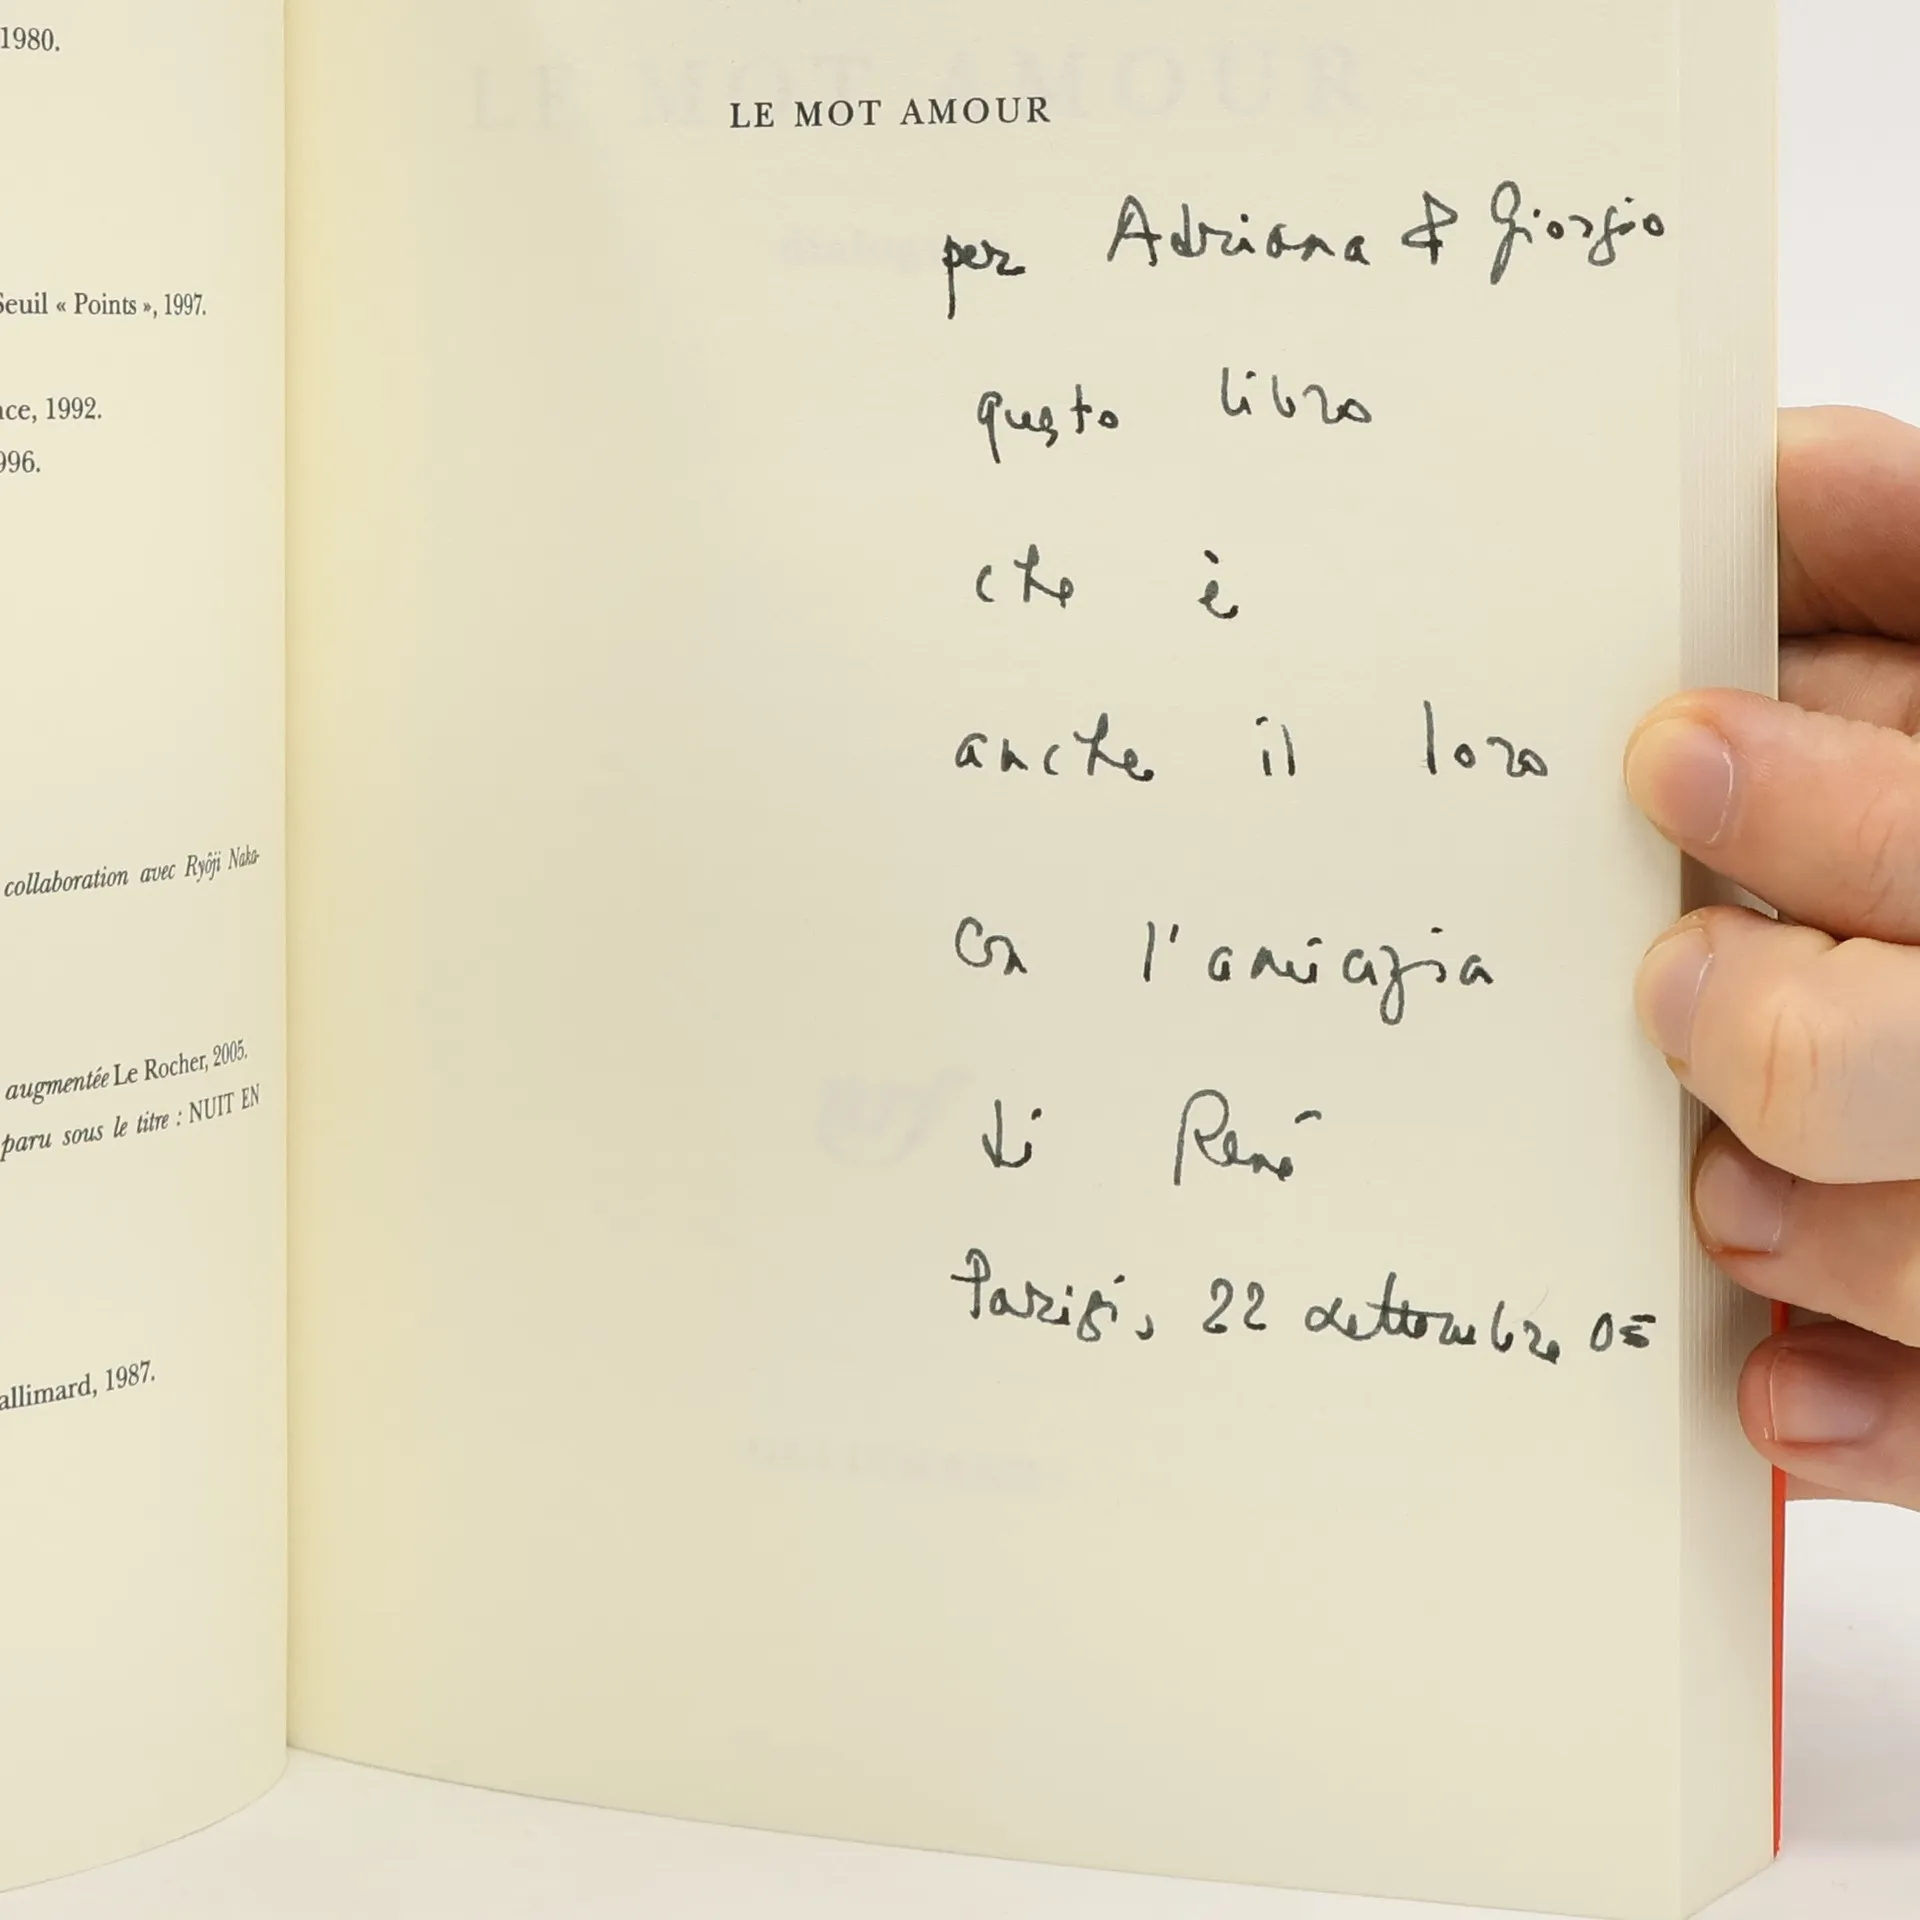 1980.
Seuil « Points », 1997.
nce, 1992.
996.
collaboration avec Ryôji Naka-
augmentée Le Rocher, 2005.
paru sous le titre : NUIT EN
allimard, 1987.
LE MOT AMOUR
per Adriana & Giorgio
questo libro
che è
anche il loro
con l'amicizia
di René
Parigi, 22 settembre 05
LE MOT AMOUR
dialogue
nrf
GALLIMARD